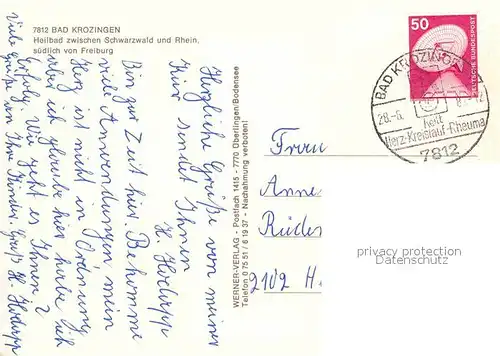 7812 BAD KROZINGEN
Heilbad zwischen Schwarzwald und Rhein,
südlich von Freiburg
Herzliche Grüße von meiner
Kur sendet Ihnen
H. Hodapp
Bin zur Zeit hier. Bekomme
viele Anwendungen, mein
Herz ist nicht in Ordnung
aber ich glaube hier habe ich
Erfolg. Wie geht es Ihnen?
Viele Grüße an Ihre Kinder. Gruß H. Hodapp
WERNER-VERLAG - Postfach 1415 - 7770 Überlingen/Bodensee
Telefon 0 75 51 / 6 19 37 - Nachahmung verboten!
50
DEUTSCHE BUNDESPOST
BAD KROZINGEN
28.-6.
heilt
Herz-Kreislauf-Rheuma
7812
Frau
Anne
Rüde
2102 H
privacy protection
Datenschutz